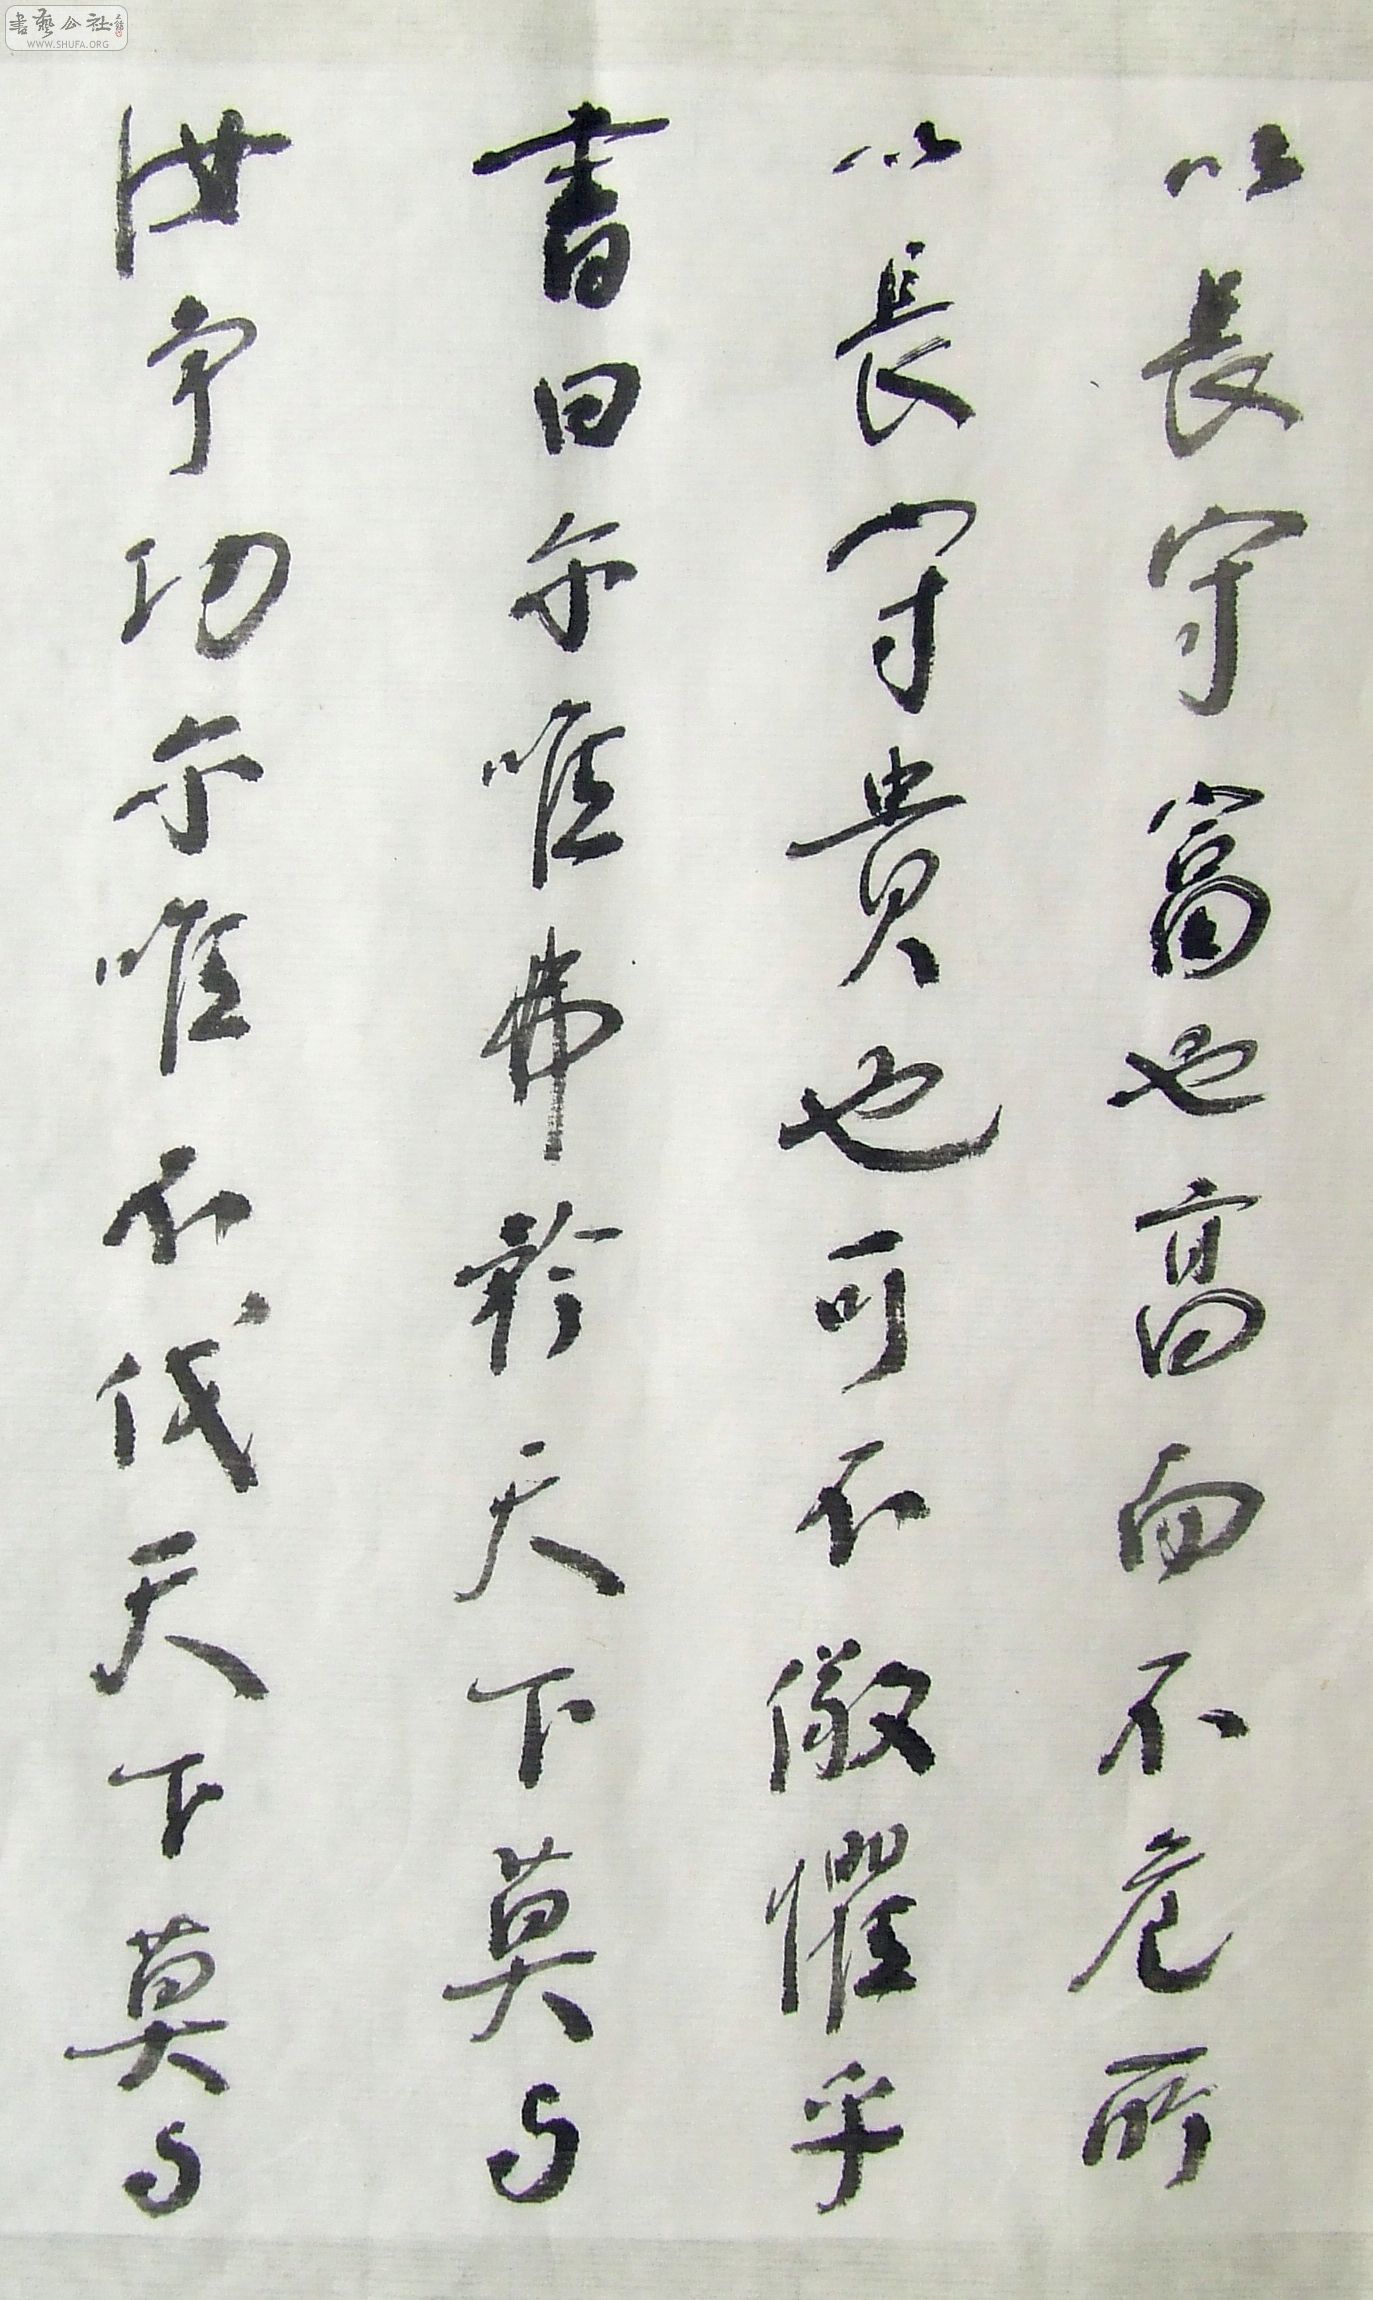 以長守富也高而不危所
以長守貴也可不儆懼乎
書曰尔唯弗矜天下莫与
汝争功尔唯不伐天下莫与
書藝公社
WWW.SHUFA.ORG